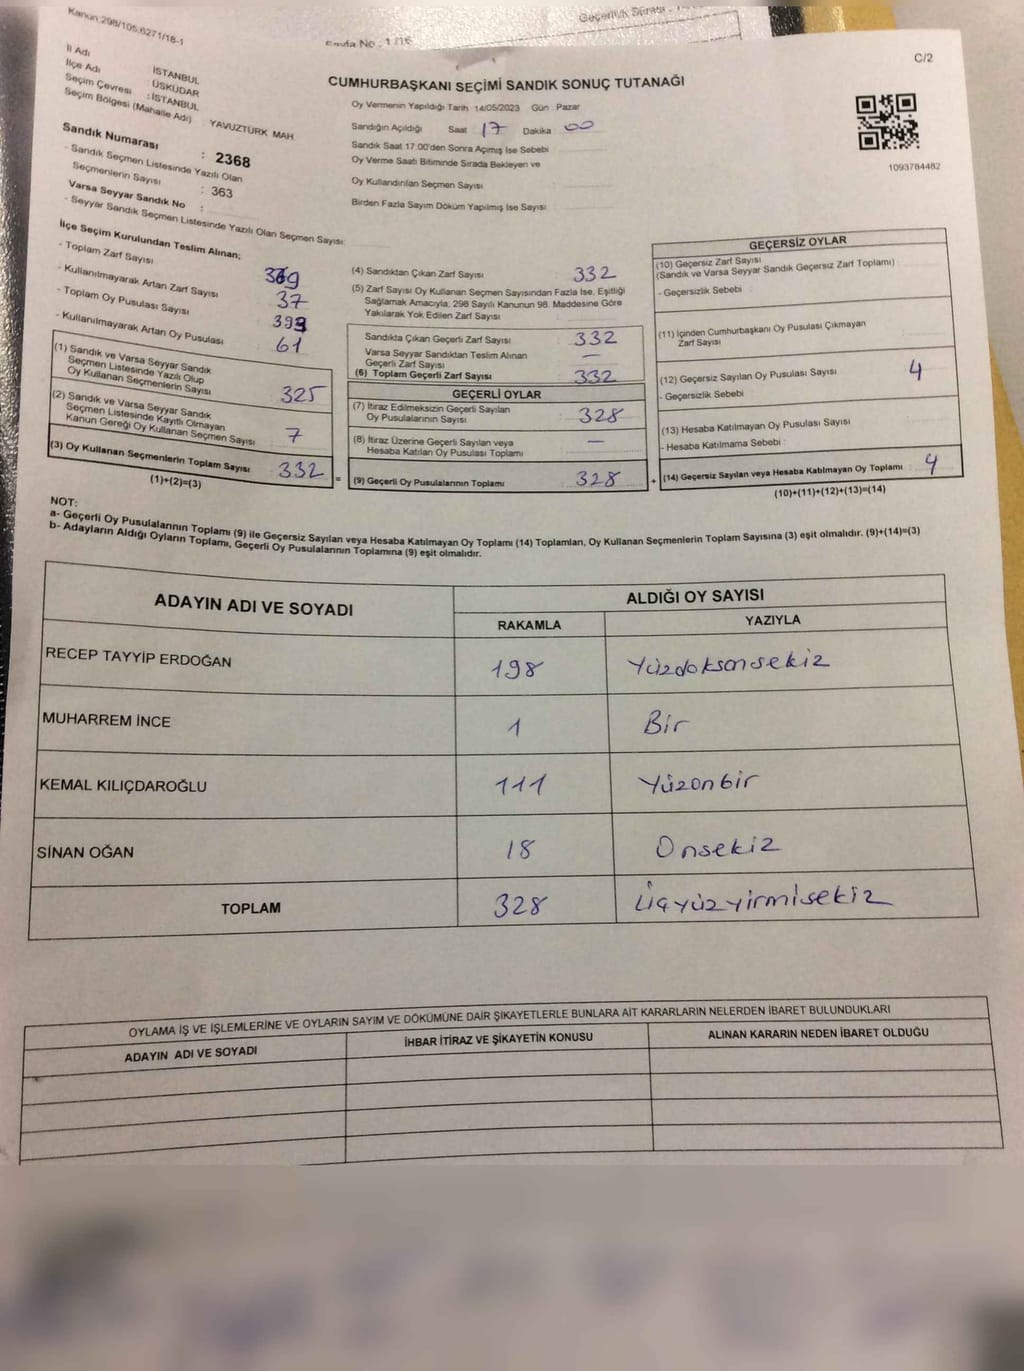 Kanun 298/105,6271/18-1
Sayfa No : 1 /16
Geçerlilik Süresi
C/2
İl Adı : İSTANBUL
İlçe Adı : ÜSKÜDAR
Seçim Çevresi : İSTANBUL
Seçim Bölgesi (Mahalle Adı) : YAVUZTÜRK MAH
Sandık Numarası : 2368
- Sandık Seçmen Listesinde Yazılı Olan
Seçmenlerin Sayısı : 363
Varsa Seyyar Sandık No :
- Seyyar Sandık Seçmen Listesinde Yazılı Olan Seçmen Sayısı:
CUMHURBAŞKANI SEÇİMİ SANDIK SONUÇ TUTANAĞI
Oy Vermenin Yapıldığı Tarih 14/05/2023 Gün : Pazar
Sandığın Açıldığı Saat 17 Dakika 00
Sandık Saat 17:00'den Sonra Açımış İse Sebebi
Oy Verme Saati Bitiminde Sırada Bekleyen ve
Oy Kullandırılan Seçmen Sayısı
Birden Fazla Sayım Döküm Yapılmış İse Sayısı
1093784482
İlçe Seçim Kurulundan Teslim Alınan;
- Toplam Zarf Sayısı 369
- Kullanılmayarak Artan Zarf Sayısı 37
- Toplam Oy Pusulası Sayısı 393
- Kullanılmayarak Artan Oy Pusulası 61
(1) Sandık ve Varsa Seyyar Sandık
Seçmen Listesinde Yazılı Olup
Oy Kullanan Seçmenlerin Sayısı 325
(2) Sandık ve Varsa Seyyar Sandık
Seçmen Listesinde Kayıtlı Olmayan
Kanun Gereği Oy Kullanan Seçmen Sayısı 7
(3) Oy Kullanan Seçmenlerin Toplam Sayısı 332
(1)+(2)=(3)
(4) Sandıktan Çıkan Zarf Sayısı 332
(5) Zarf Sayısı Oy Kullanan Seçmen Sayısından Fazla İse, Eşitliği
Sağlamak Amacıyla; 298 Sayılı Kanunun 98. Maddesine Göre
Yakılarak Yok Edilen Zarf Sayısı
Sandıkta Çıkan Geçerli Zarf Sayısı 332
Varsa Seyyar Sandıktan Teslim Alınan
Geçerli Zarf Sayısı —
(6) Toplam Geçerli Zarf Sayısı 332
GEÇERLİ OYLAR
(7) İtiraz Edilmeksizin Geçerli Sayılan
Oy Pusulalarının Sayısı 328
(8) İtiraz Üzerine Geçerli Sayılan veya
Hesaba Katılan Oy Pusulası Toplamı —
= (9) Geçerli Oy Pusulalarının Toplamı 328
GEÇERSİZ OYLAR
(10) Geçersiz Zarf Sayısı
(Sandık ve Varsa Seyyar Sandık Geçersiz Zarf Toplamı)
- Geçersizlik Sebebi
(11) İçinden Cumhurbaşkanı Oy Pusulası Çıkmayan
Zarf Sayısı
(12) Geçersiz Sayılan Oy Pusulası Sayısı 4
- Geçersizlik Sebebi
(13) Hesaba Katılmayan Oy Pusulası Sayısı
- Hesaba Katılmama Sebebi
+ (14) Geçersiz Sayılan veya Hesaba Katılmayan Oy Toplamı 4
(10)+(11)+(12)+(13)=(14)
NOT:
a- Geçerli Oy Pusulalarının Toplamı (9) ile Geçersiz Sayılan veya Hesaba Katılmayan Oy Toplamı (14) Toplamları, Oy Kullanan Seçmenlerin Toplam Sayısına (3) eşit olmalıdır. (9)+(14)=(3)
b- Adayların Aldığı Oyların Toplamı, Geçerli Oy Pusulalarının Toplamına (9) eşit olmalıdır.
ADAYIN ADI VE SOYADI
ALDIĞI OY SAYISI
RAKAMLA YAZIYLA
RECEP TAYYİP ERDOĞAN 198 Yüzdoksansekiz
MUHARREM İNCE 1 Bir
KEMAL KILIÇDAROĞLU 111 Yüzonbir
SİNAN OĞAN 18 Onsekiz
TOPLAM 328 Üçyüzyirmisekiz
OYLAMA İŞ VE İŞLEMLERİNE VE OYLARIN SAYIM VE DÖKÜMÜNE DAİR ŞİKAYETLERLE BUNLARA AİT KARARLARIN NELERDEN İBARET BULUNDUKLARI
ADAYIN ADI VE SOYADI İHBAR İTİRAZ VE ŞİKAYETİN KONUSU ALINAN KARARIN NEDEN İBARET OLDUĞU